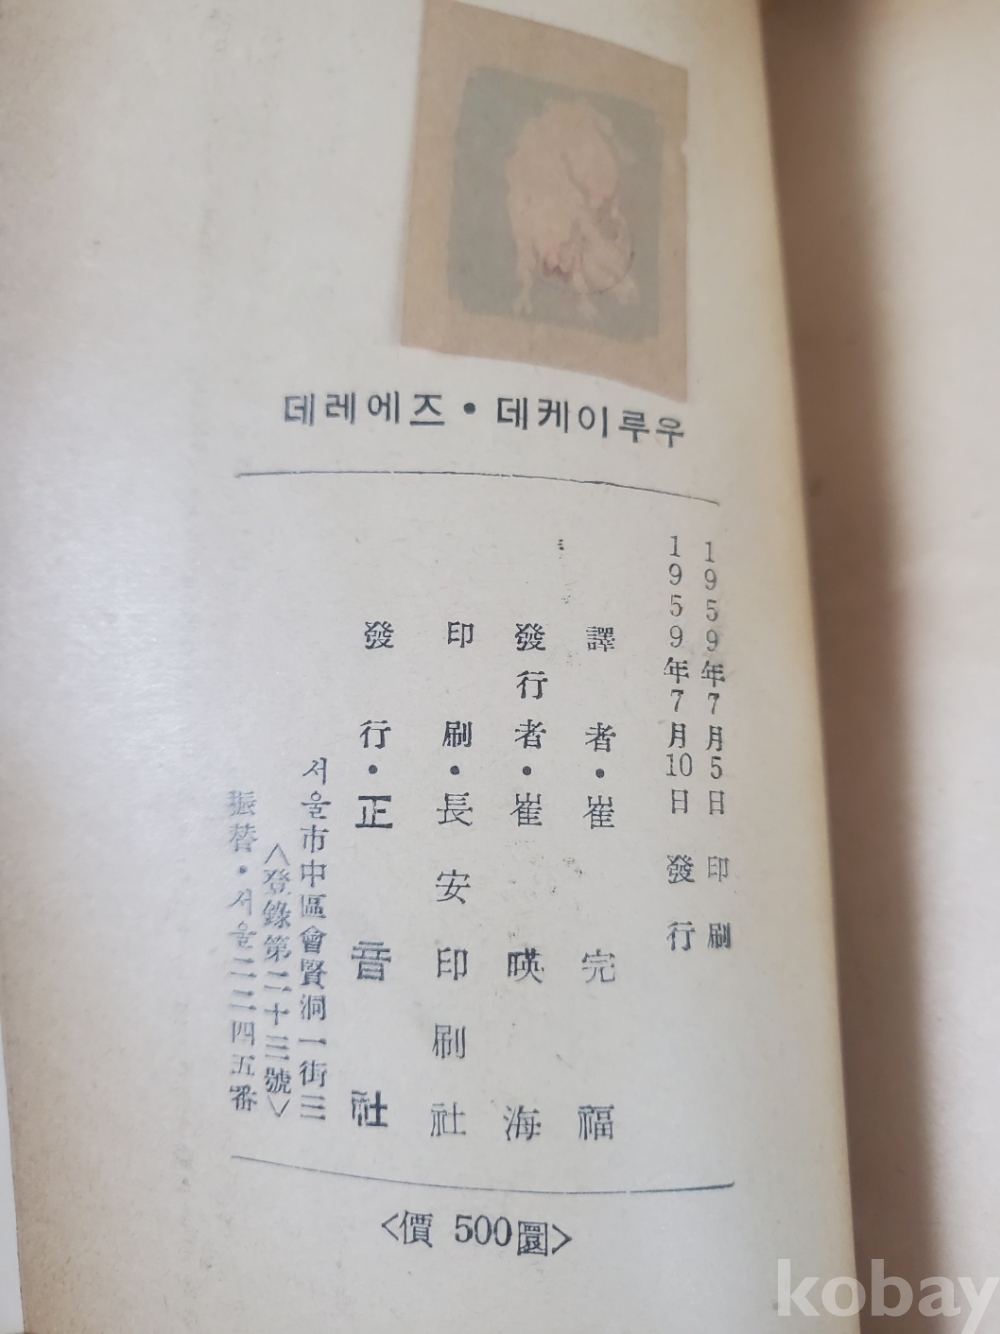 데레에즈·데케이루우
1959年7月5日 印刷
1959年7月10日 發行
譯者·崔完福
發行者·崔暎海
印刷·長安印刷社
發行·正音社
서울市中區會賢洞一街三
<登錄第二十三號>
振替·서울二二四五番
<價 500圜>
kobay